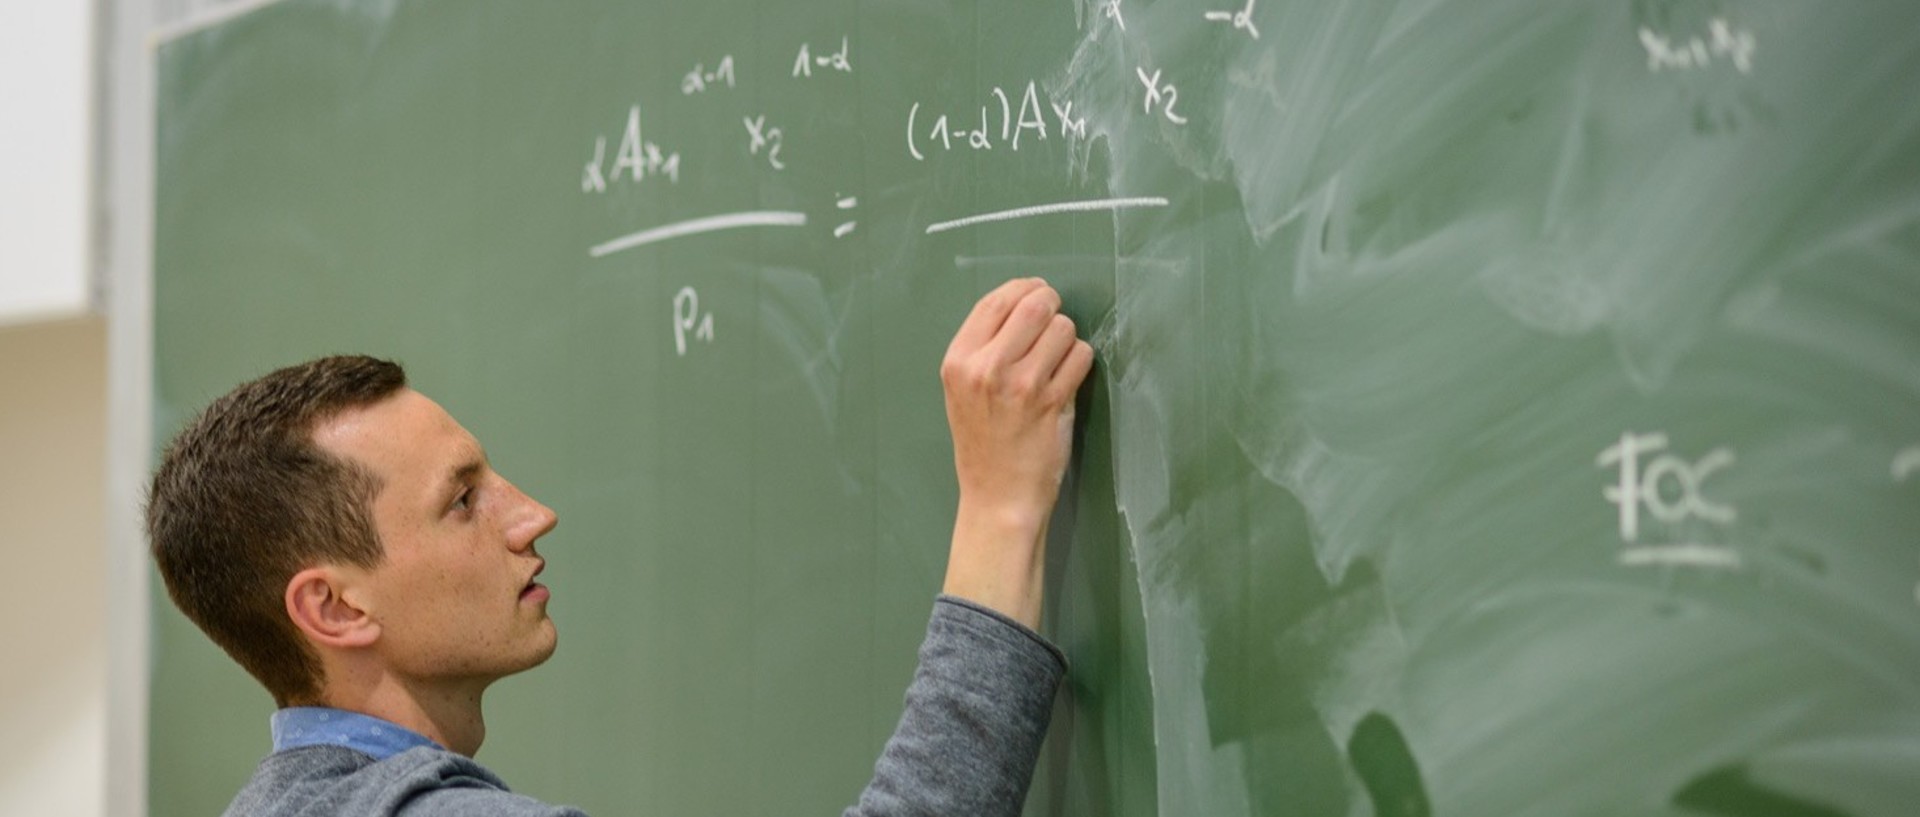 αAx₁^α-1 x₂^1-α = (1-α)Ax₁^α x₂^-α
p₁
FOC